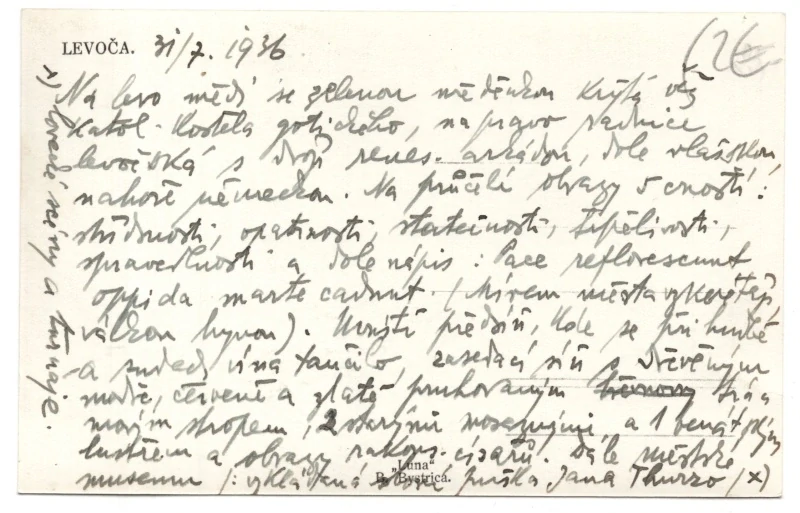 LEVOČA. 31/7. 1936
(26
Na levo mědí se zelenou měděnkou krytá věž
katol. kostela gotického, na pravo radnice
levočská s dvojí renes. arkádou, dole vlašskou,
nahoře německou. Na průčelí obrazy 5 cností:
střídmosti, opatrnosti, statečnosti, trpělivosti,
spravedlnosti a dole nápis: Pace reflorescunt
oppida marte cadunt. (Mírem města vykvétají
válkou hynou). Uvnitř předsíň, kde se při hudbě
a sudech vína tančilo, zasedací síň s dřevěným
modře, červeně a zlatě pruhovaným trá-
movým stropem, 2 starými mosaznými a 1 benátským
lustrem a obrazy rakous. císařů. Dále městské
museum (: vykládaná puška Jana Thurzo (x)
x) lovecké scény a
„Luna“
B. Bystrica.